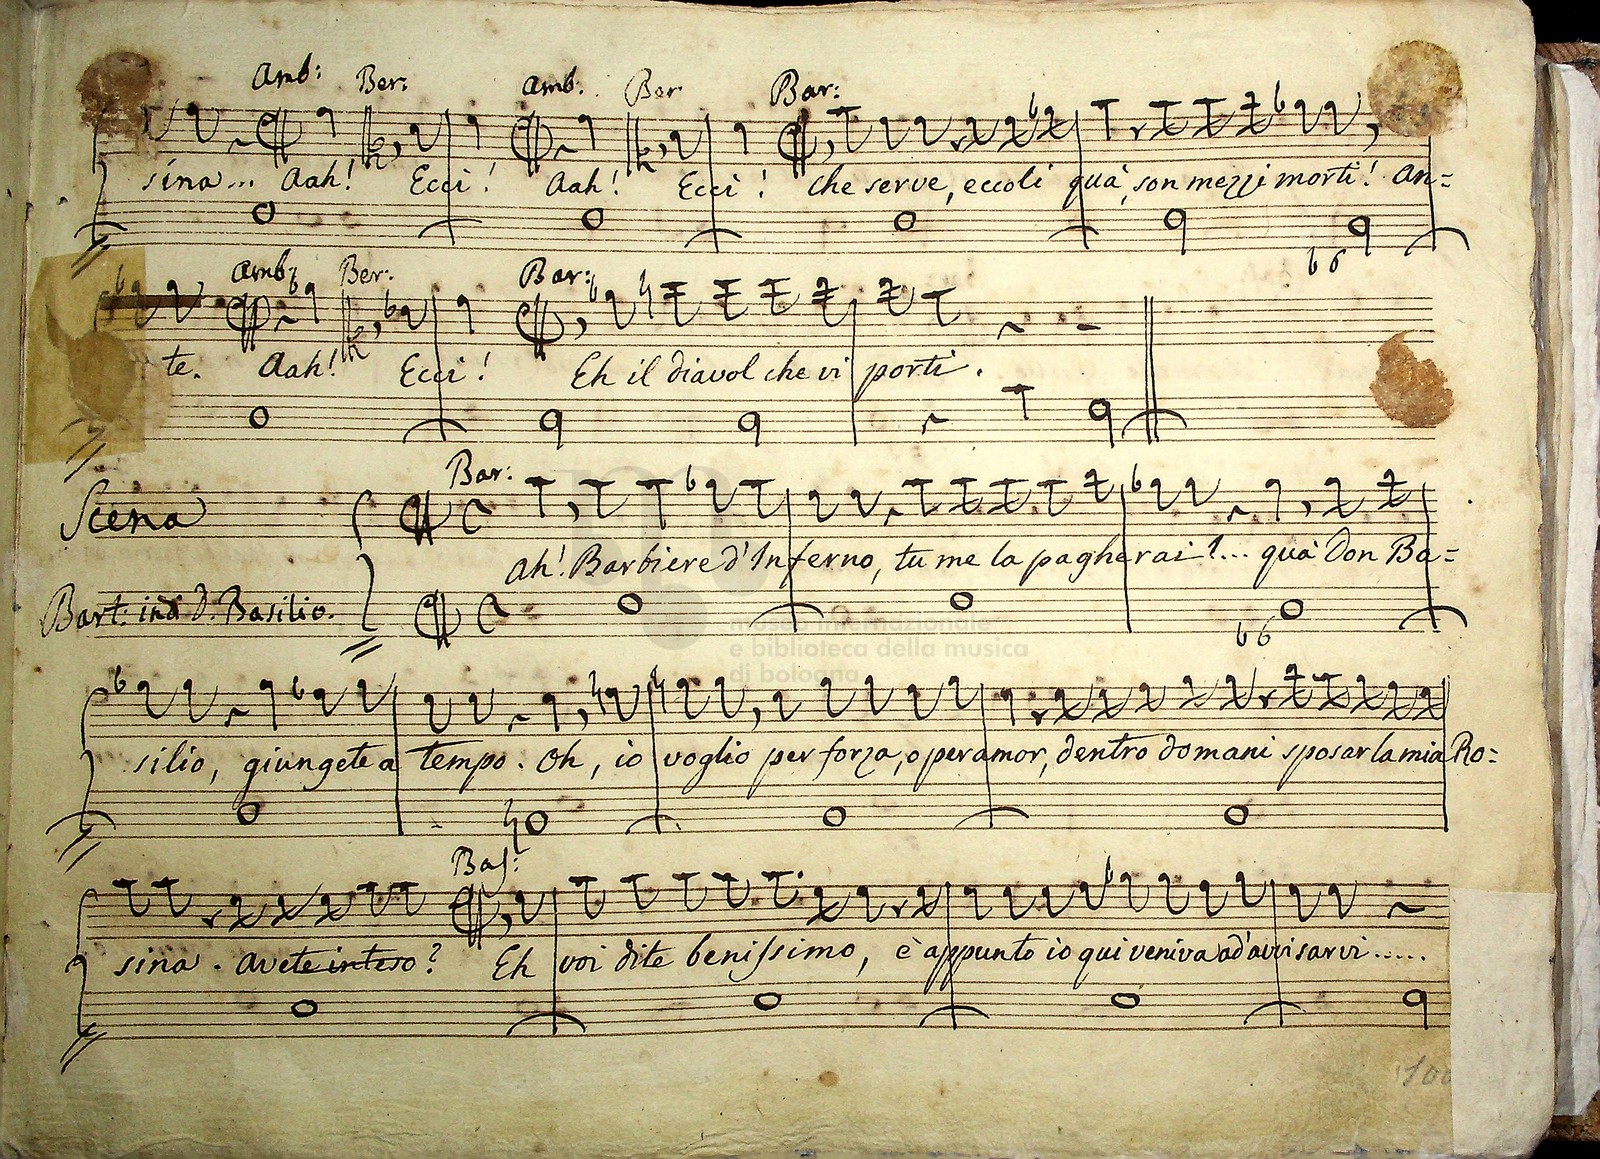 Amb: Ber: Amb: Ber Bar:
sina... Aah! Ecci! Aah! Ecci! che serve, eccoli quà, son mezzi morti! An=
b6
Amb: Ber: Bar:
te. Aah! Ecci! Eh il diavol che vi porti.
Bar:
Scena
Ah! Barbiere d'Inferno, tu me la pagherai!... quà Don Ba=
Bart: ind D. Basilio.
b6
museo internazionale
e biblioteca della musica
di bologna
silio, giungete a tempo. Oh, io voglio per forza, o per amor, dentro domani sposar la mia Ro=
Bas:
sina. avete inteso? Eh voi dite benissimo, è appunto io qui veniva ad'avvisarvi.....
100